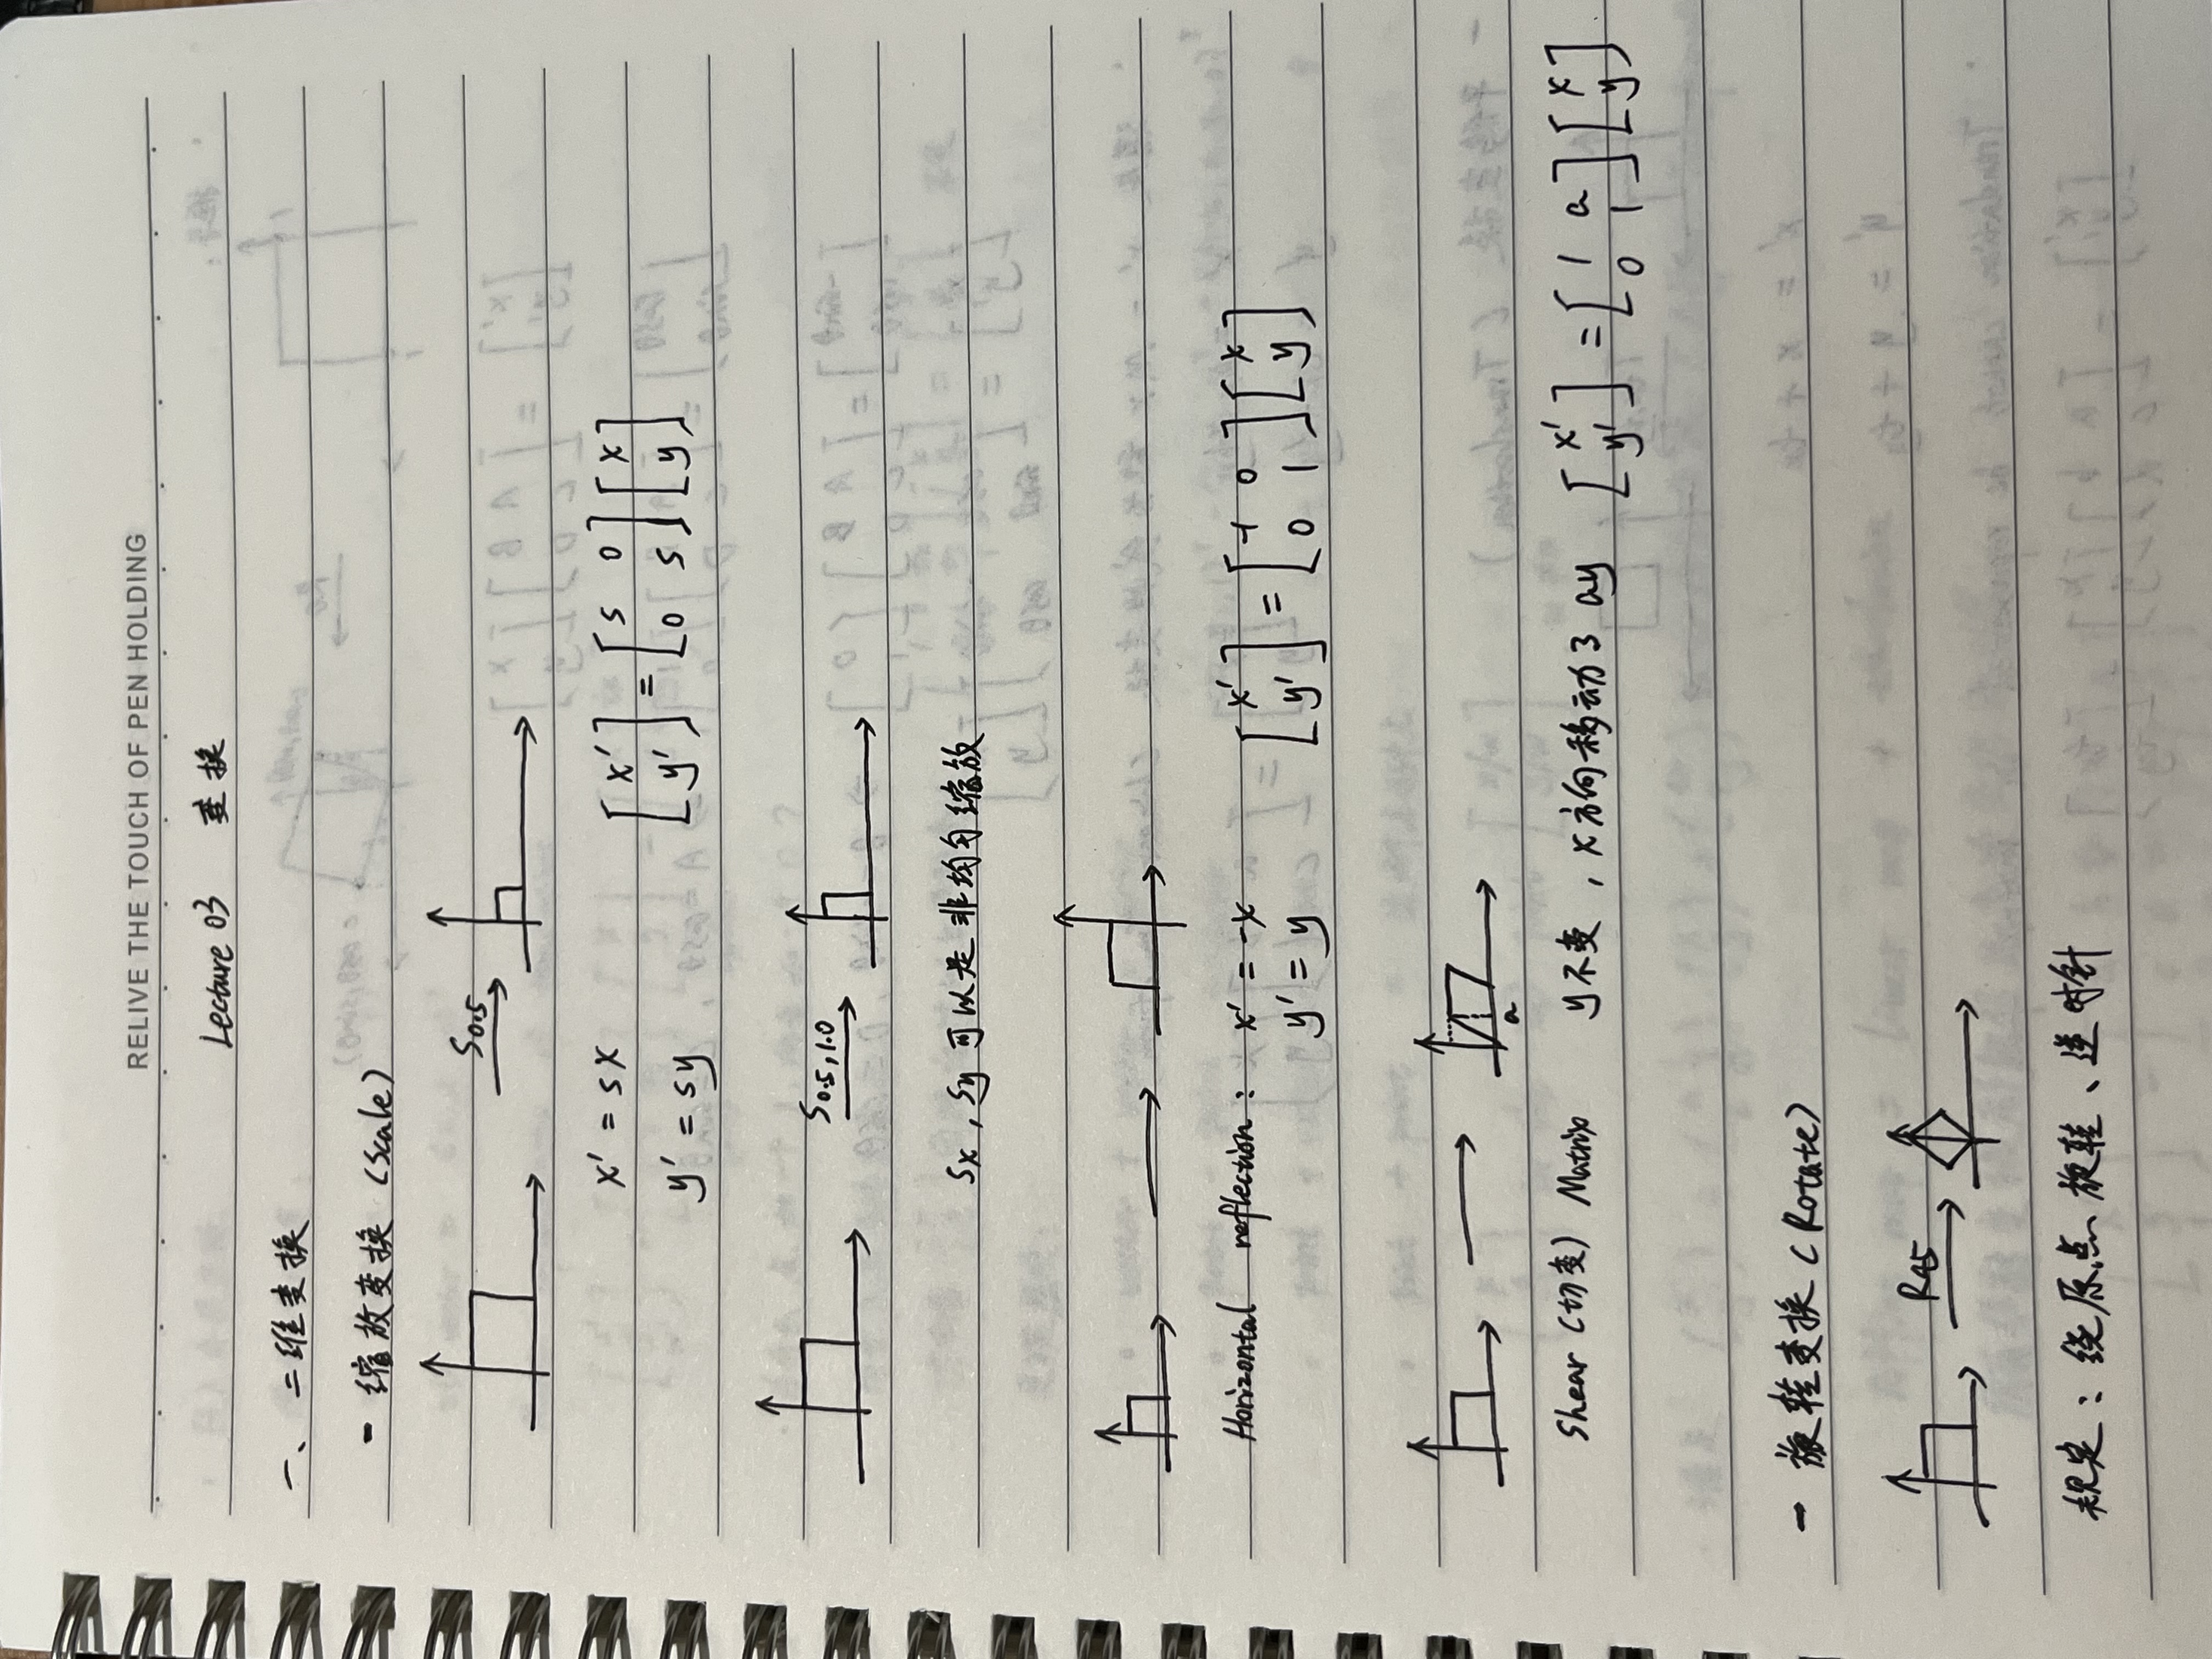 RELIVE THE TOUCH OF PEN HOLDING
Lecture 03 变换
一、二维变换
- 缩放变换 (Scale)
S0.5
x' = sx
y' = sy
[x' y'] = [s 0 0 s] [x y]
S0.5,1.0
Sx, Sy 可以是非均匀缩放
Horizontal reflection: x' = -x
y' = y
[x' y'] = [-1 0 0 1] [x y]
a
Shear (切变) Matrix y不变, x方向移动了 ay [x' y'] = [1 a 0 1] [x y]
- 旋转变换 (Rotate)
R45
规定: 绕原点旋转、逆时针